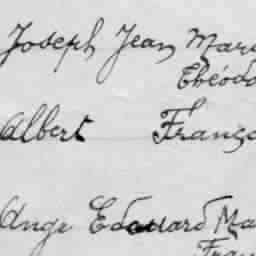 Joseph Jean Mari
Théodo
Albert Franço
Ange Edouard Ma
Fran